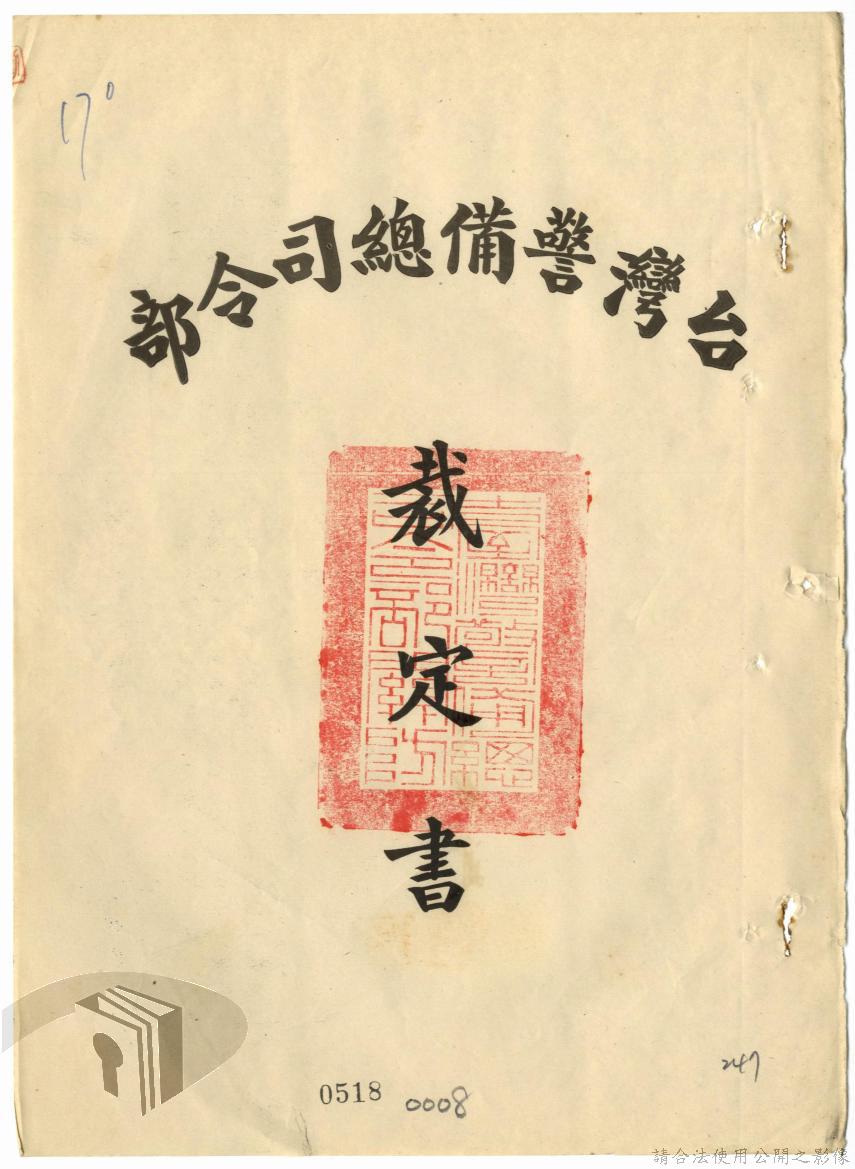 170
台灣警備總司令部
裁定書
0518 0008
247
請合法使用公開之影像